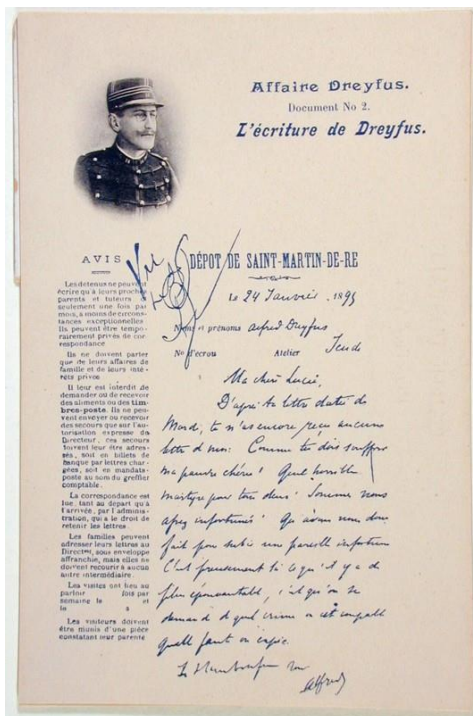 Affaire Dreyfus.
Document No 2.
L'écriture de Dreyfus.
Vu
AVIS
Les détenus ne peuvent
écrire qu'à leurs proches
parents et tuteurs
seulement une fois par
mois, à moins de circons-
tances exceptionnelles.
Ils peuvent être tempo-
rairement privés de cor-
respondance.
Ils ne doivent parler
que de leurs affaires de
famille et de leurs inté-
rêts privés
Il leur est interdit de
demander ou de recevoir
des aliments ou des tim-
bres-poste. Ils ne peu-
vent envoyer ou recevoir
des secours que sur l'au-
torisation expresse du
Directeur, ces secours
doivent leur être adres-
sés, soit en billets de
banque par lettres char-
gées, soit en mandats-
poste au nom du greffier
comptable.
La correspondance est
lue, tant au départ qu'à
l'arrivée, par l'adminis-
tration, qui a le droit de
retenir les lettres.
Les familles peuvent
adresser leurs lettres au
Directeur, sous enveloppe
affranchie, mais elles ne
doivent recourir à aucun
autre intermédiaire.
Les visites ont lieu au
parloir fois par
semaine le et
le à
Les visiteurs doivent
être munis d'une pièce
constatant leur parenté
DÉPOT DE SAINT-MARTIN-DE-RE
Le 24 Janvier 1895
Nom et prénoms Alfred Dreyfus
No d'écrou Atelier Jeudi
Ma chère Lucie,
D'après ta lettre datée de
Mardi, tu n'as encore reçu aucune
lettre de moi. Comme tu dois souffrir
ma pauvre chérie! Quel horrible
martyre pour tous deux! Sommes nous
assez infortunés! Qu'avons nous donc
fait pour subir une pareille infortune
C'est précisément là ce qu'il y a de
plus épouvantable, c'est qu'on se
demande de quel crime on est coupable
quelle faute on expie.
Alfred